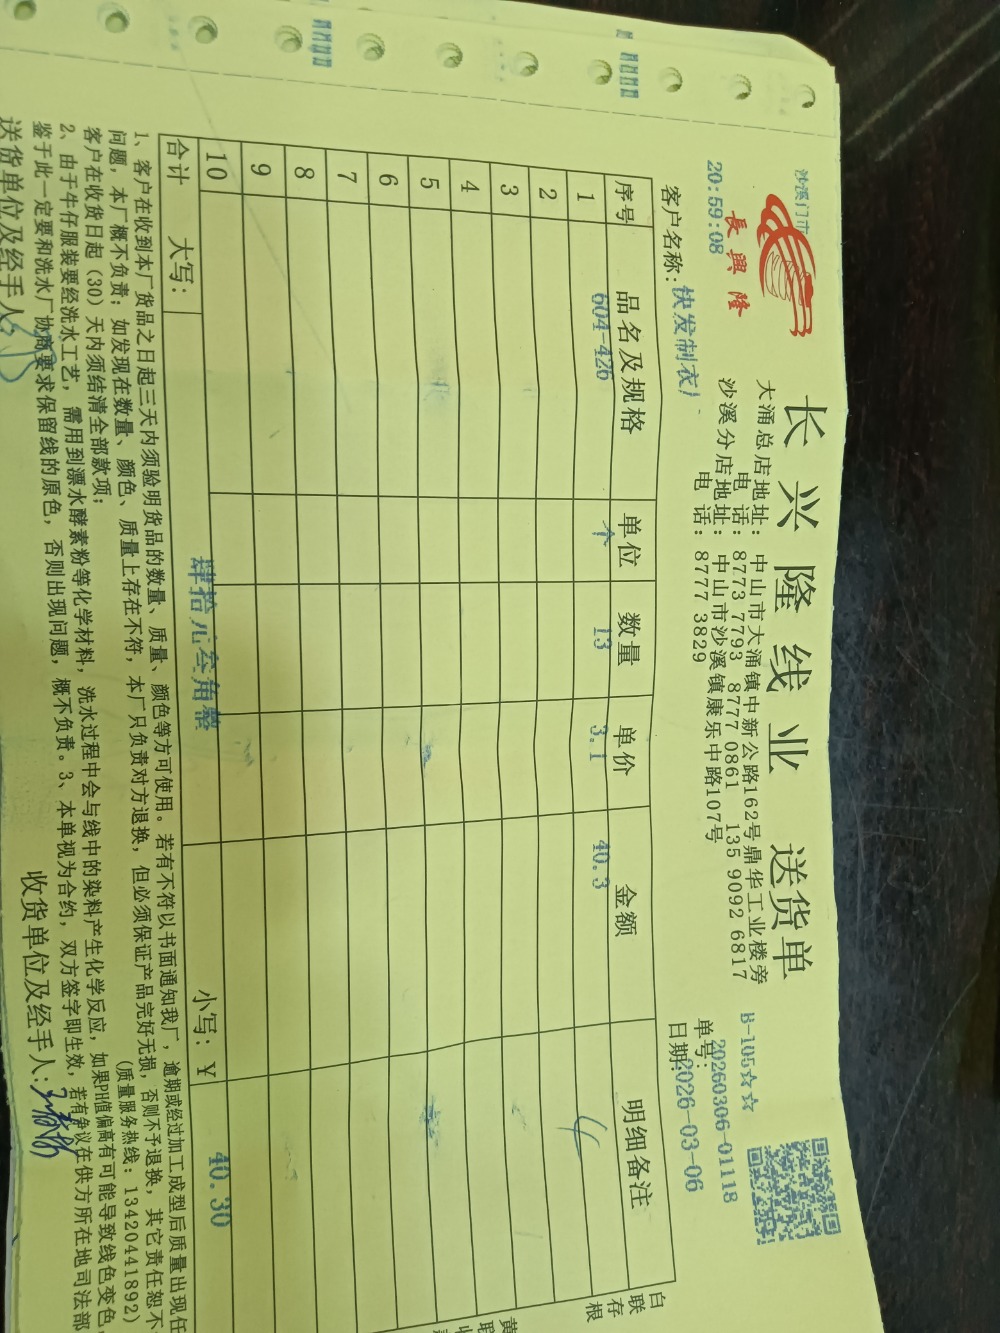 沙溪门市
長興隆
20:59:08
长兴隆线业 送货单
大涌总店地址: 中山市大涌镇中新公路162号鼎华工业楼旁
电话: 8773 7793 8777 0861 135 9092 6817
沙溪分店地址: 中山市沙溪镇康乐中路107号
电话: 8777 3829
B-105☆☆
单号: 20260306-01118
日期: 2026-03-06
客户名称: 快发制衣厂
序号 品名及规格 单位 数量 单价 金额 明细备注
1 604-426 个 13 3.1 40.3
2
3
4
5
6
7
8
9
10
合计 大写: 肆拾元叁角整 小写: ¥ 40.30
白联存根
黄联
1、客户在收到本厂货品之日起三天内须验明货品的数量、质量、颜色等方可使用。若有不符以书面通知我厂,逾期或经过加工成型后质量出现任
问题,本厂概不负责;如发现在数量、颜色、质量上存在不符,本厂只负责对方退换,但必须保证产品完好无损,否则不予退换,其它责任恕不
客户在收货日起(30)天内须结清全部款项; (质量服务热线: 13420441892)
2、由于牛仔服装要经洗水工艺,需用到漂水酵素粉等化学材料,洗水过程中会与线中的染料产生化学反应,如果PH值偏高有可能导致线色变色
鉴于此一定要和洗水厂协商要求保留线的原色,否则出现问题,概不负责。3、本单视为合约,双方签字即生效,若有争议在供方所在地司法部
送货单位及经手人: 收货单位及经手人: